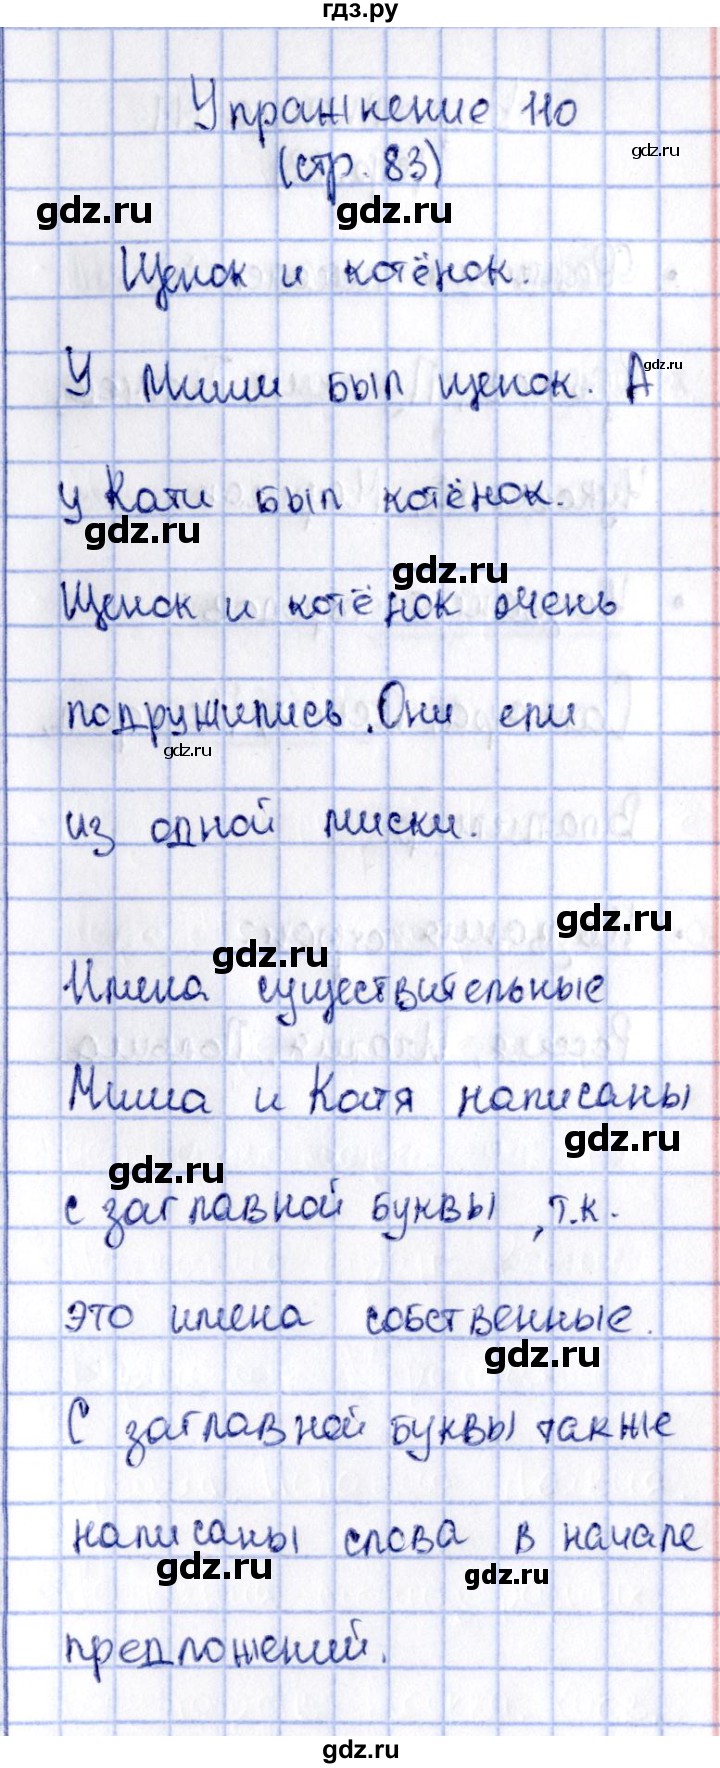 гдз.ру
Упражнение 110
gdz.ru
(стр. 83)
gdz.ru
gdz.ru
Щенок и котёнок.
У Миши был щенок. А
gdz.ru
у Кати был котёнок.
gdz.ru
gdz.ru
Щенок и котёнок очень
подружились. Они ели
gdz.ru
из одной миски.
gdz.ru
gdz.ru
Имена существительные
Миша и Катя написаны
gdz.ru
gdz.ru
с заглавной буквы, т.к.
это имена собственные.
gdz.ru
С заглавной буквы также
написаны слова в начале
gdz.ru
gdz.ru
предложений.
gdz.ru